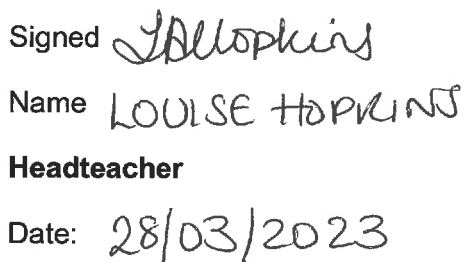 Signed LAHopkins
Name LOUISE HOPKINS
Headteacher
Date: 28/03/2023